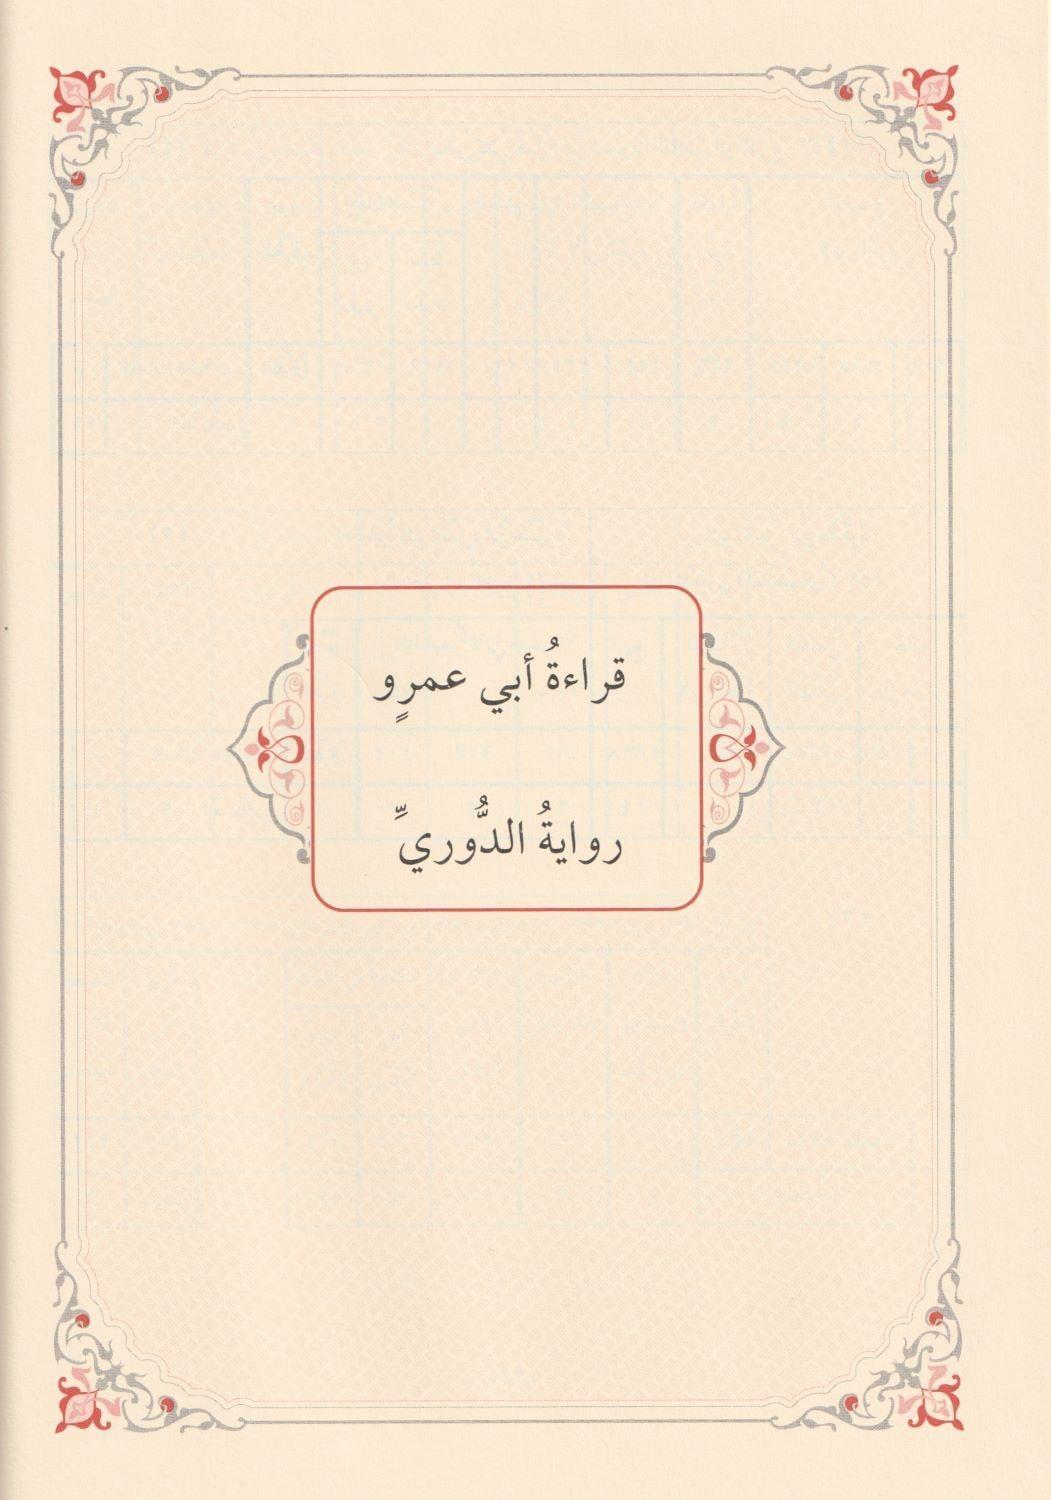 قراءةُ أبي عمرٍو
روايةُ الدُّوريِّ